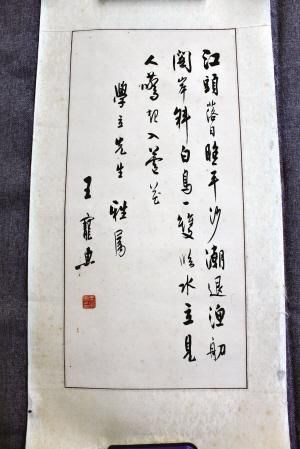 江頭落日照平沙潮退漁舠
閣岸斜白鳥一雙臨水立見
人驚起入蘆花
學立先生 雅屬
王寵惠